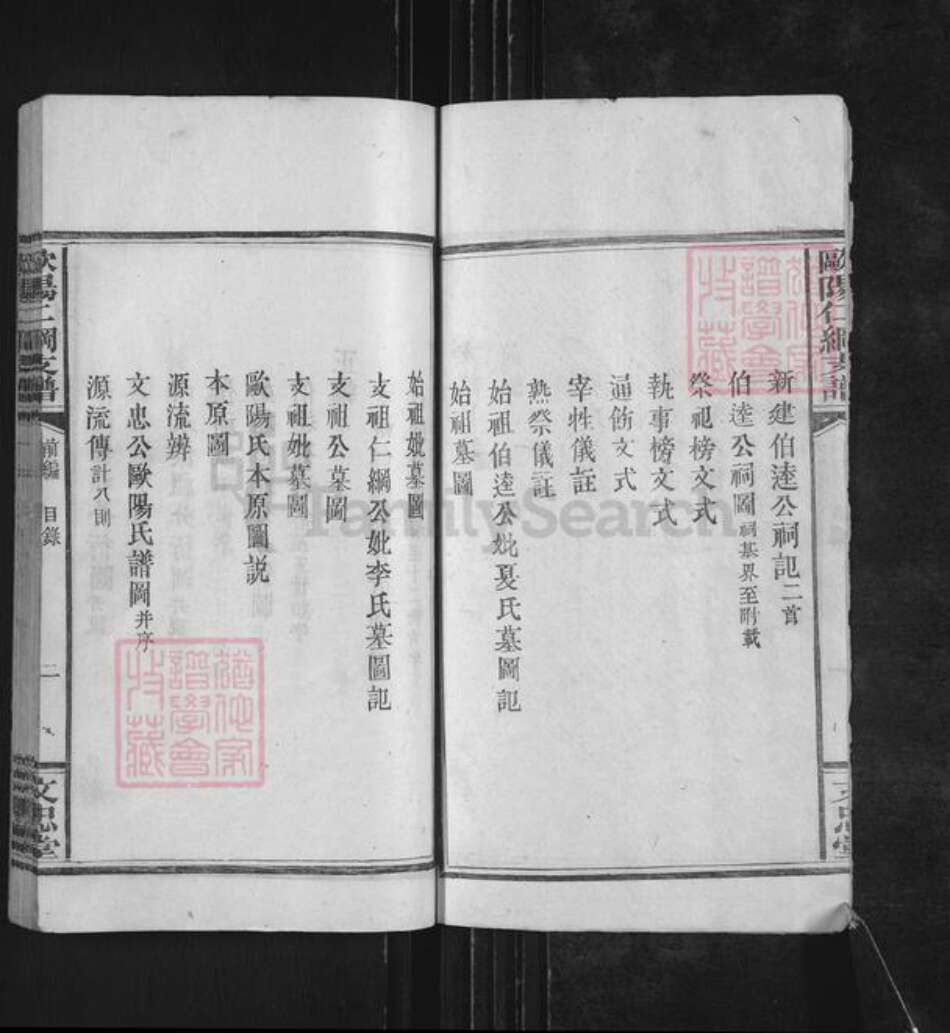 歐陽仁綱支譜
新建伯逵公祠記二首
伯逵公祠圖祠基界至附載
祭祀榜文式
執事榜文式
通飭文式
宰牲儀註
熟祭儀註
始祖伯逵公妣夏氏墓圖記
始祖墓圖
始祖妣墓圖
支祖仁綱公妣李氏墓圖記
支祖公墓圖
支祖妣墓圖
歐陽氏本原圖説
本原圖
源流辨
文忠公歐陽氏譜圖并序
源流傳計八則
歐陽仁綱支譜
前編
目錄
二
文忠堂
文忠堂
譜學會
收藏
譜學會
收藏
FamilySearch